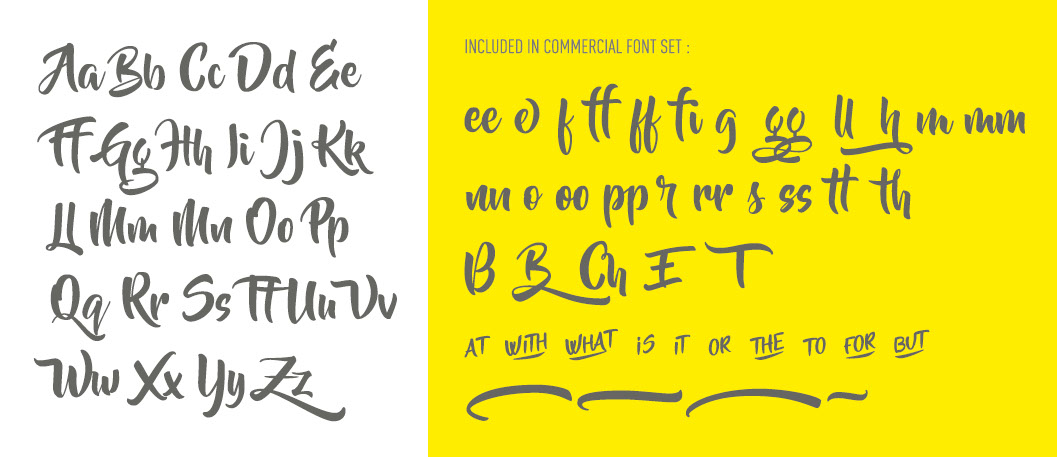 Aa Bb Cc Dd Ee
Ff Gg Hh Ii Jj Kk
Ll Mm Nn Oo Pp
Qq Rr Ss Tt Uu Vv
Ww Xx Yy Zz
INCLUDED IN COMMERCIAL FONT SET :
ee o f ff ff fi g gg ll h m mm
nn o oo pp r rr s ss tt th
B B Ch E T
AT WiTH WHAT iS iT OR THE TO FOR BUT